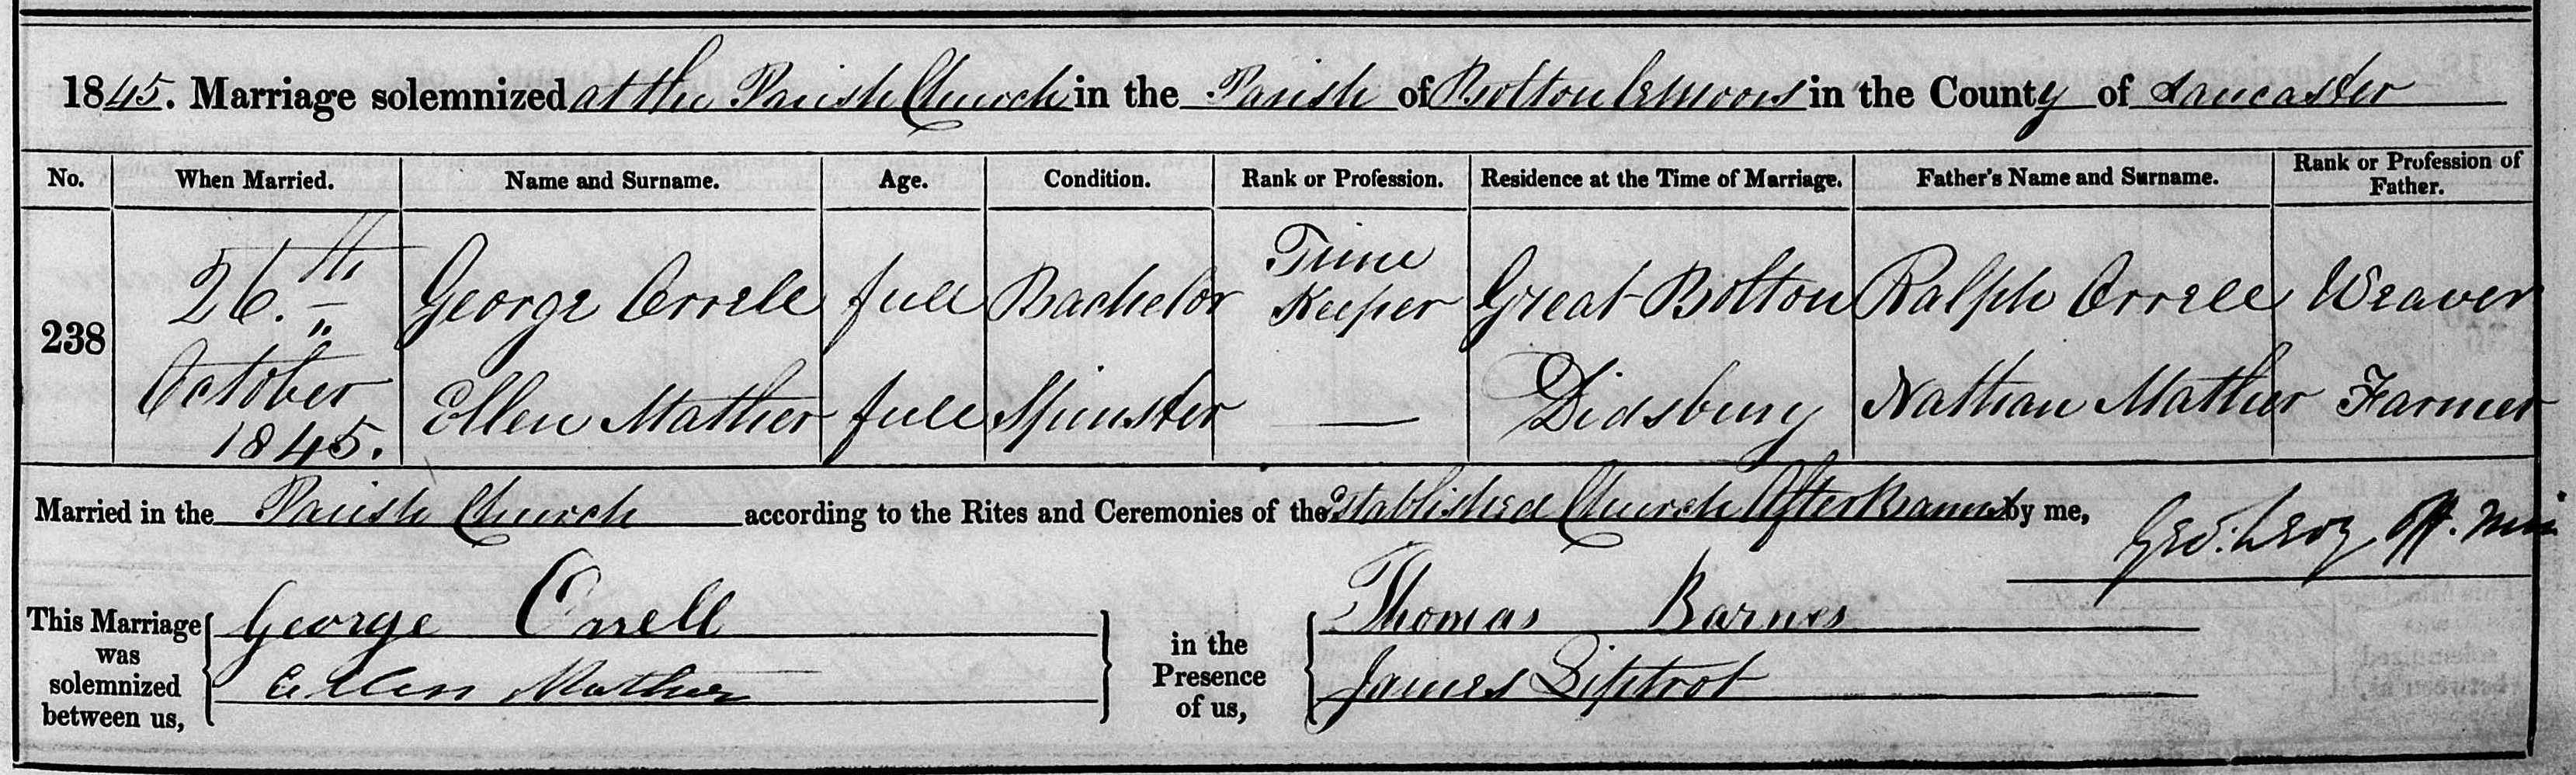 1845. Marriage solemnized at the Parish Church in the Parish of Bolton le Moors in the County of Lancaster
No. When Married. Name and Surname. Age. Condition. Rank or Profession. Residence at the Time of Marriage. Father's Name and Surname. Rank or Profession of Father.
238 26.th October 1845. George Orrell full Bachelor Time Keeper Great Bolton Ralph Orrell Weaver
Ellen Mather full Spinster — Didsbury Nathan Mather Farmer
Married in the Parish Church according to the Rites and Ceremonies of the Established Church After Banns by me,
Geo: Off. Min
This Marriage was solemnized between us, George Orrell Ellen Mather
in the Presence of us, Thomas Barnes James Liptrot